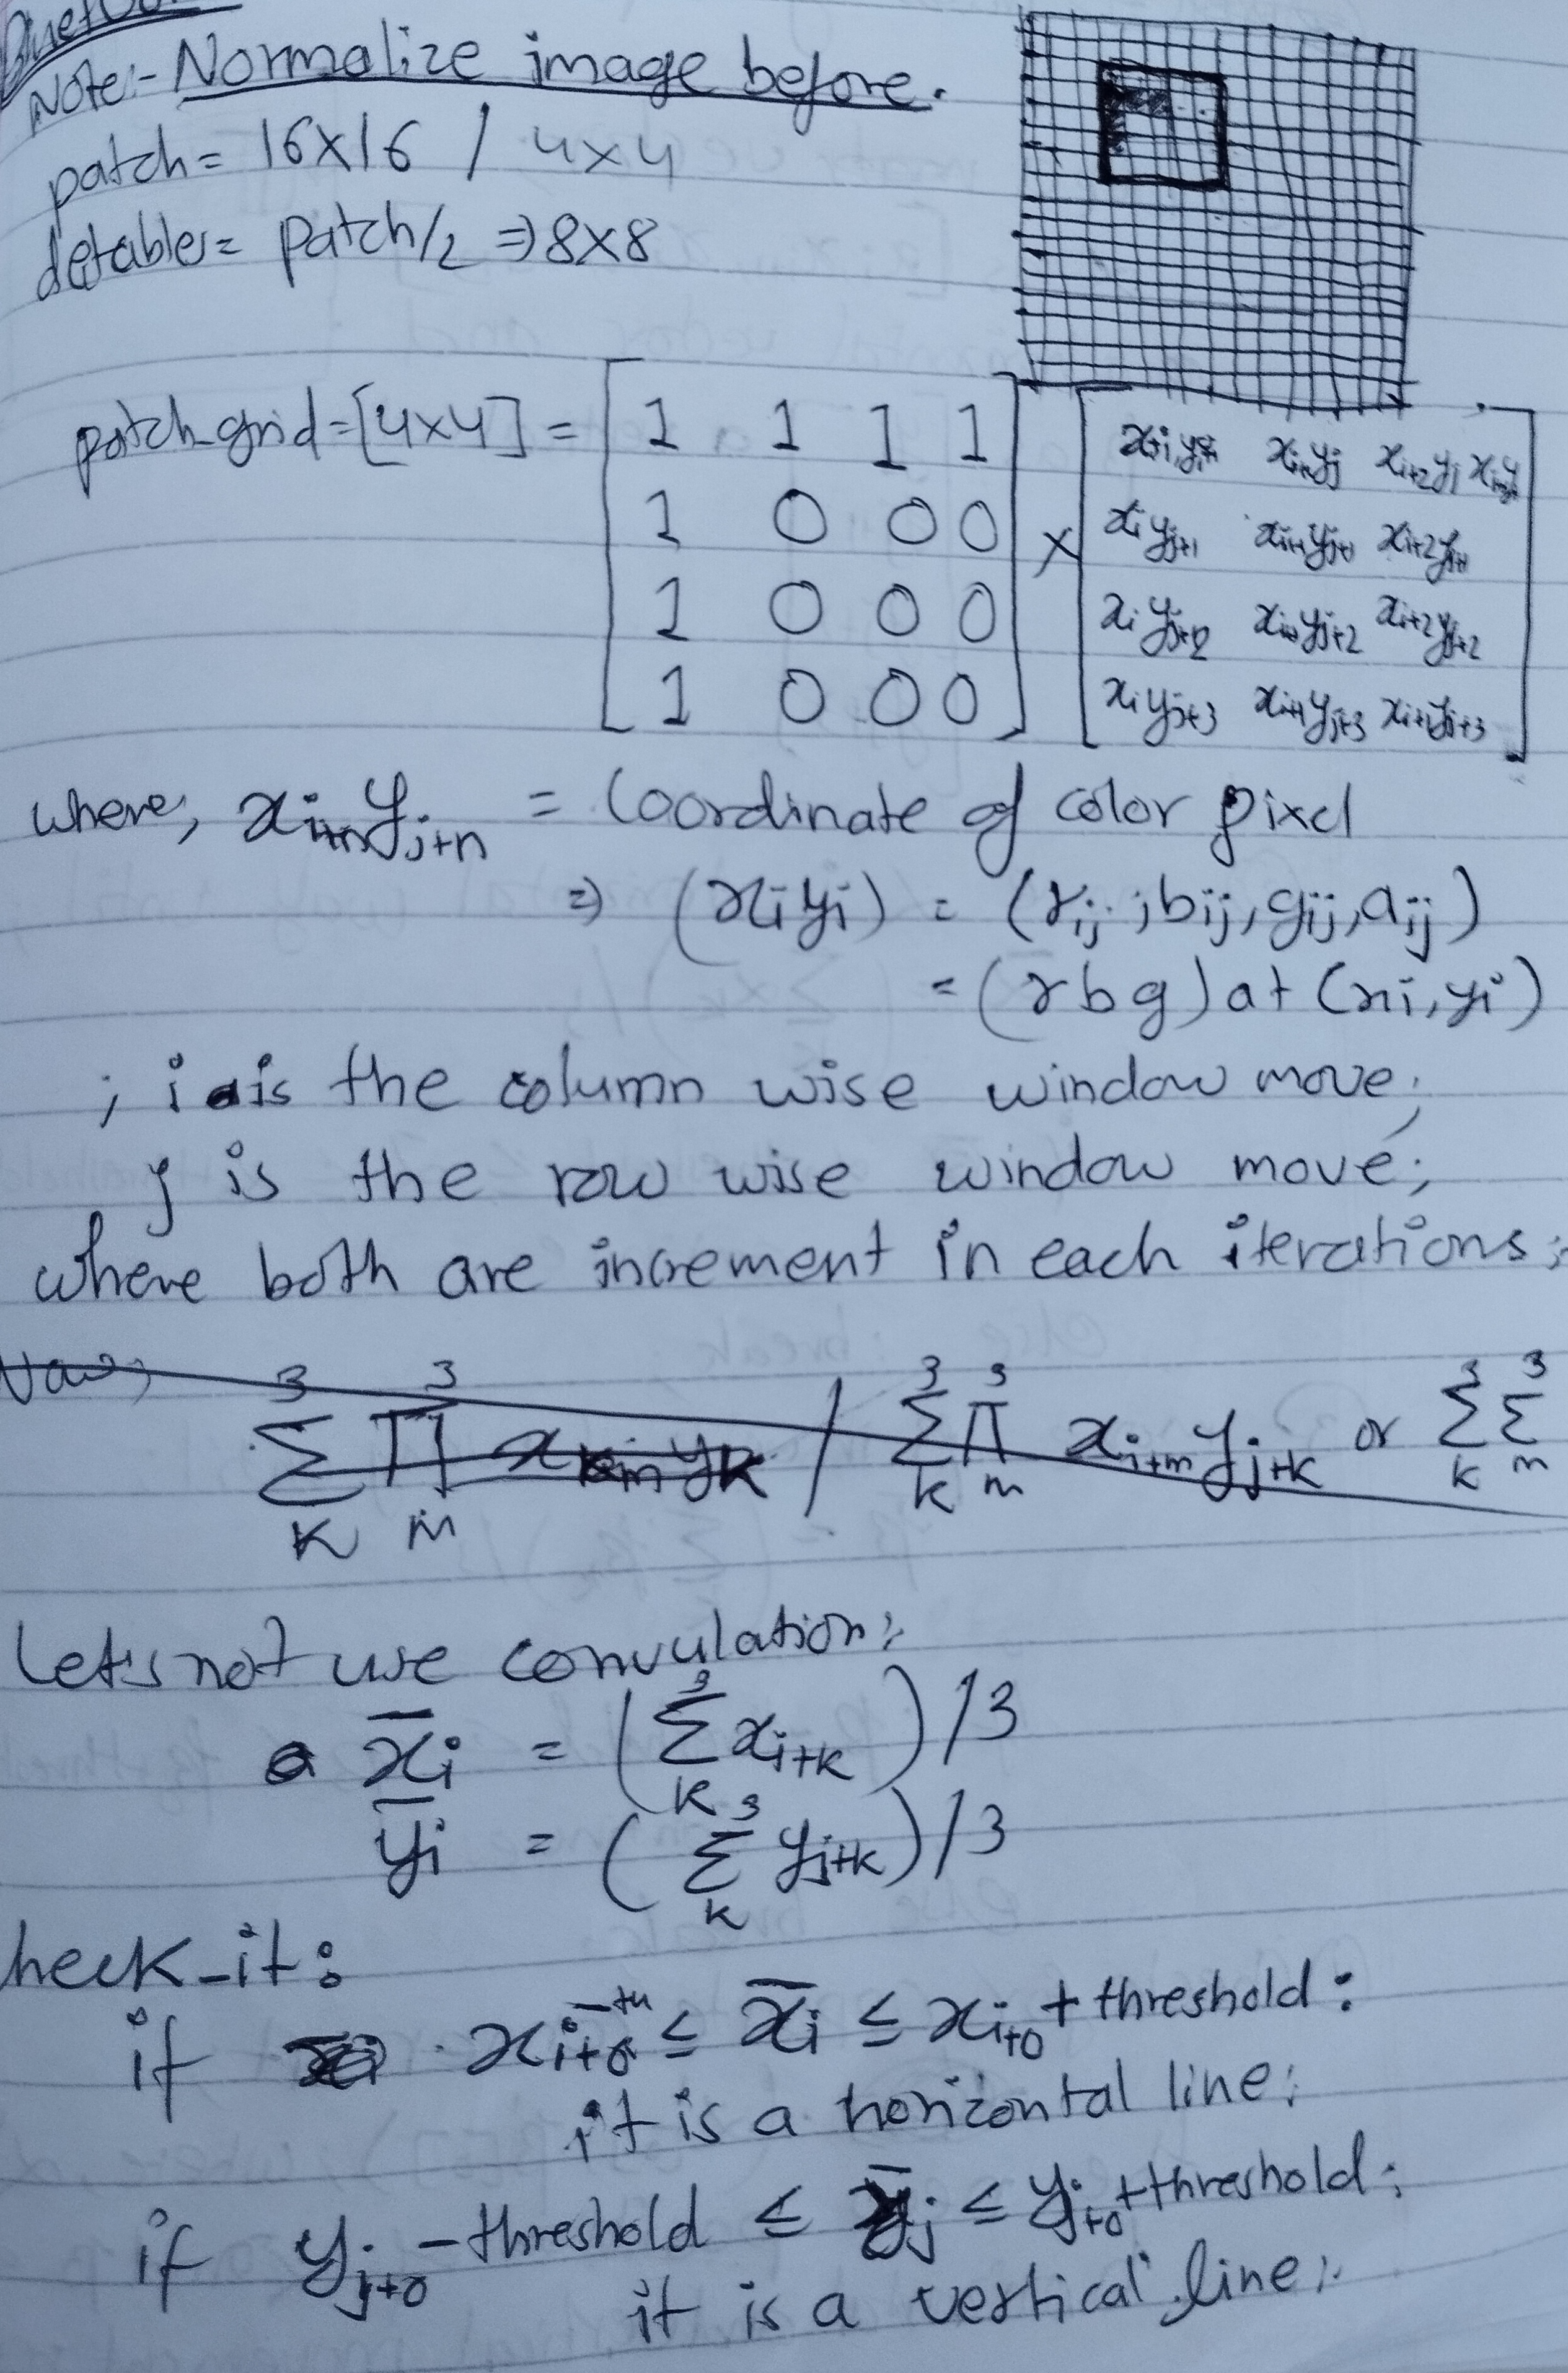 Note:- Normalize image before.
patch = 16x16 / 4x4
detable = patch/2 => 8x8
patch_grid = [4x4] = [ 1 1 1 1 ] × [ x_{i+1}y_j x_{i+2}y_j
1 0 0 0 x_i y_{j+1} x_{i+1}y_{j+1} x_{i+2}y_{j+1}
1 0 0 0 x_i y_{j+2} x_{i+1}y_{j+2} x_{i+2}y_{j+2}
1 0 0 0 x_i y_{j+3} x_{i+1}y_{j+3} x_{i+1}y_{j+3} ]
where, x_{i+n}y_{j+n} = Coordinate of color pixel
=> (x_i y_i) = (r_ij, b_ij, g_ij, a_ij)
= (r b g) at (x_i, y_i)
; i is the column wise window move;
j is the row wise window move;
where both are increment in each iterations;
3 3 / Σ_k^3 Π_m^3 x_{i+m}y_{j+k} or Σ_k^3 Σ_m^3
Σ_k Π_m
Let's not use convulation:
x̄_i = (Σ_k^3 x_{i+k})/3
ȳ_i = (Σ_k^3 y_{j+k})/3
heck_it:
if x_{i+0} - th ≤ x̄_i ≤ x_{i+0} + threshold:
it is a horizontal line;
if y_{j+0} - threshold ≤ ȳ_j ≤ y_{j+0} + threshold:
it is a vertical line;